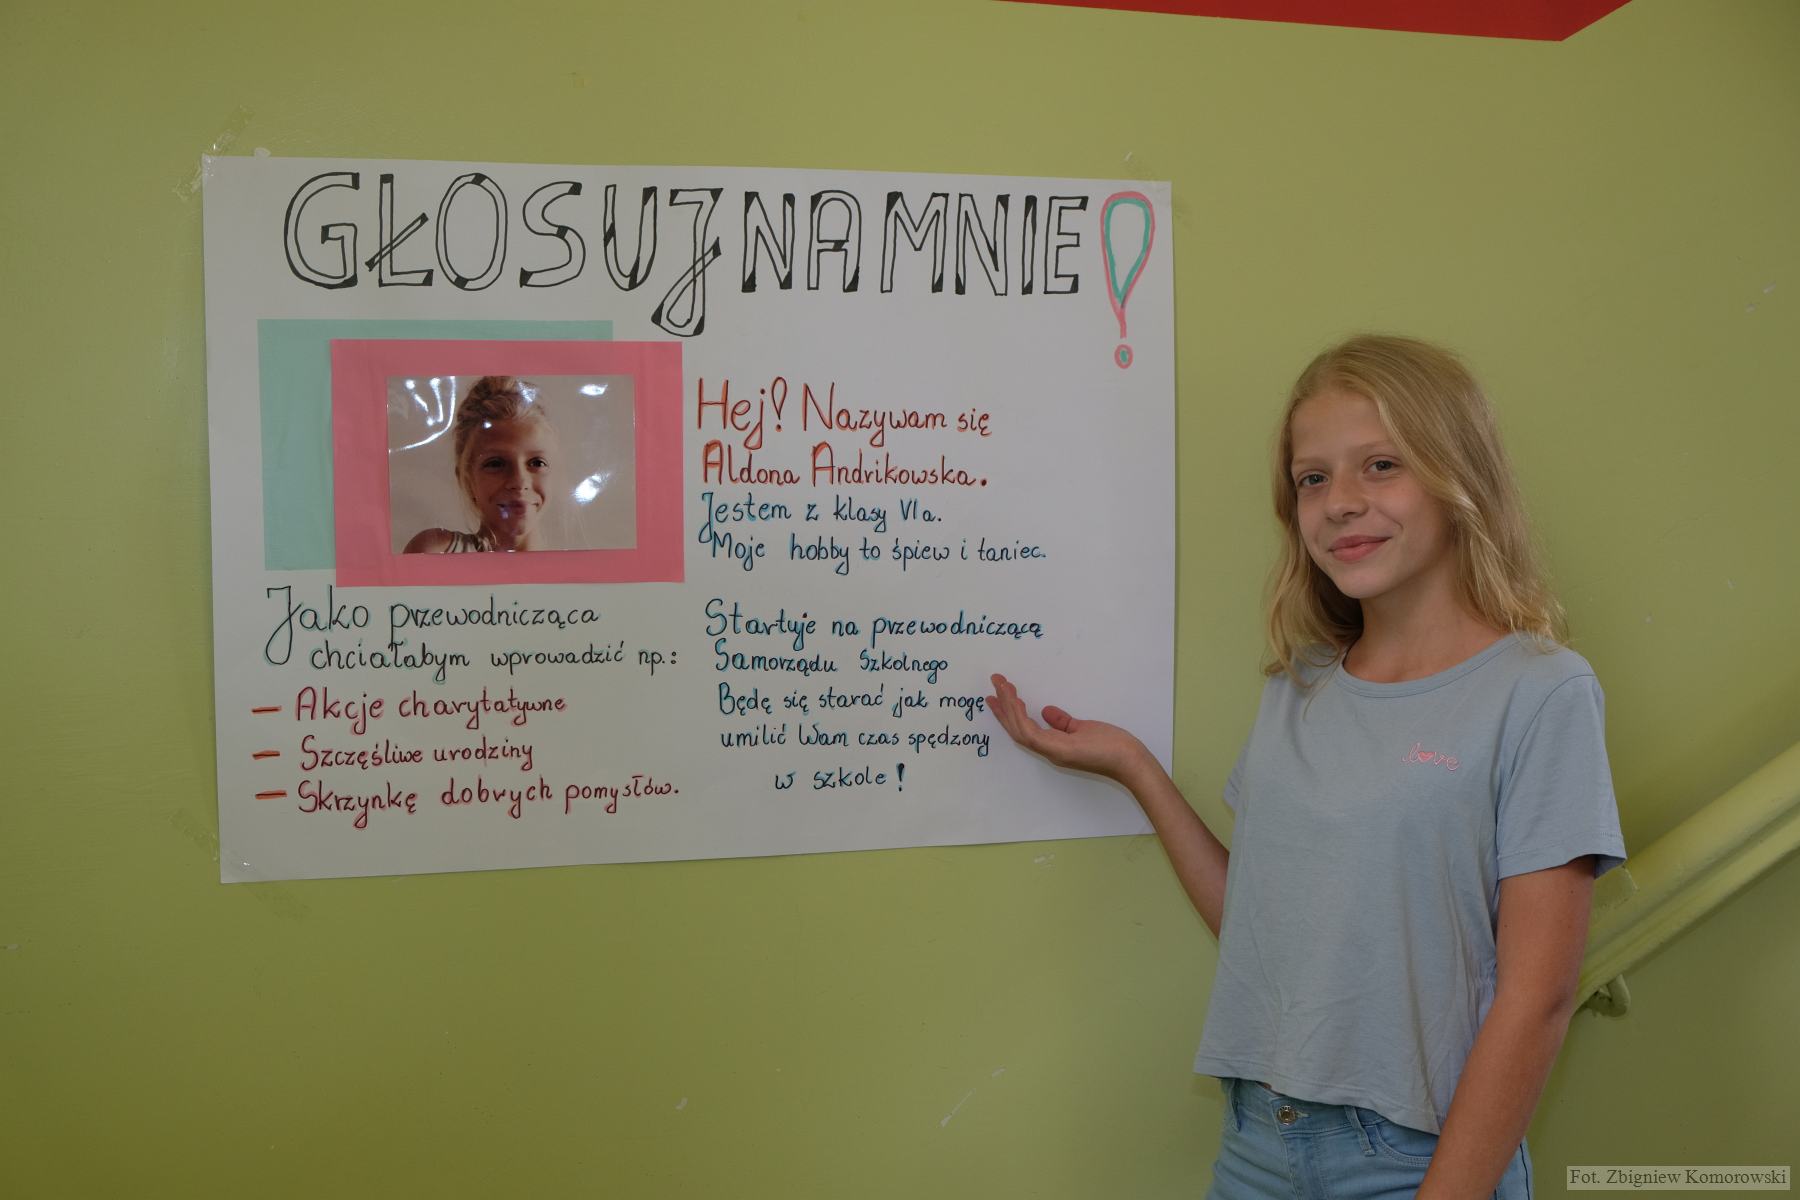 GŁOSUJ NA MNIE!
Hej! Nazywam się
Aldona Andrikowska.
Jestem z klasy VI a.
Moje hobby to śpiew i taniec.
Startuje na przewodniczącą
Samorządu Szkolnego
Będę się starać jak mogę
umilić Wam czas spędzony
w szkole!
Jako przewodnicząca
chciałabym wprowadzić np.:
— Akcje charytatywne
— Szczęśliwe urodziny
— Skrzynkę dobrych pomysłów.
love
Fot. Zbigniew Komorowski